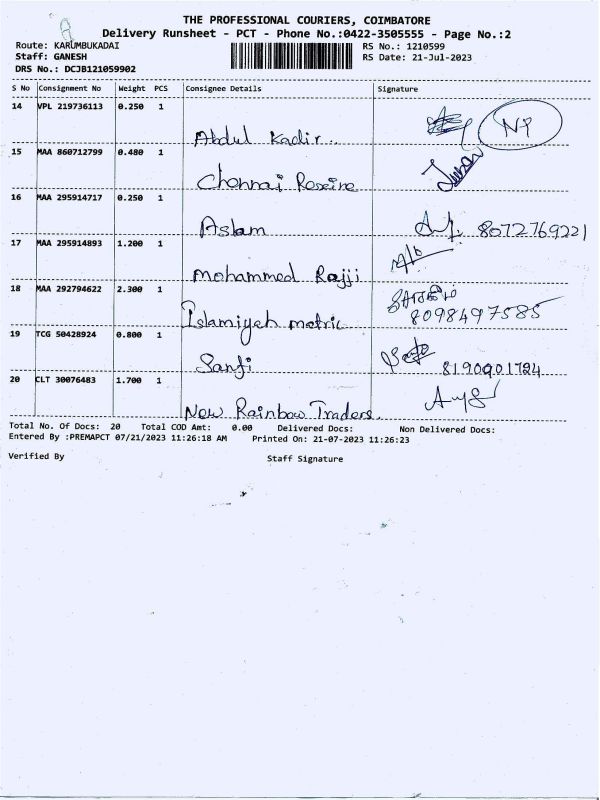 THE PROFESSIONAL COURIERS, COIMBATORE
Delivery Runsheet - PCT - Phone No.:0422-3505555 - Page No.:2
Route: KARUMBUKADAI RS No.: 1210599
Staff: GANESH RS Date: 21-Jul-2023
DRS No.: DCJB121059902
S No Consignment No Weight PCS Consignee Details Signature
14 VPL 219736113 0.250 1
Abdul Kadir..
NP
15 MAA 860712799 0.480 1
Chennai
16 MAA 295914717 0.250 1
Aslam 8072769221
17 MAA 295914893 1.200 1
Mohammed Rajji
18 MAA 292794622 2.300 1
Islamiyeh matric 8098497585
19 TCG 50428924 0.800 1
Sanfi 8190901784
20 CLT 30076483 1.700 1
New Rainbow Traders.
Total No. Of Docs: 20 Total COD Amt: 0.00 Delivered Docs: Non Delivered Docs:
Entered By :PREMAPCT 07/21/2023 11:26:18 AM Printed On: 21-07-2023 11:26:23
Verified By Staff Signature